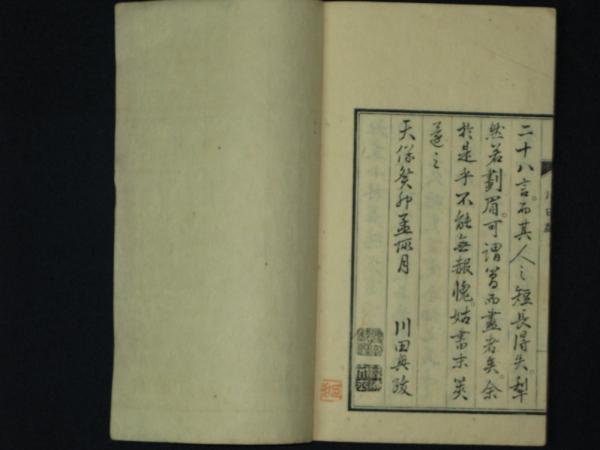 二十八言。而其人之短長得失。犁
然若劃眉。可謂簡而盡者矣。余
於是乎不能無赧愧。姑書末簡
還之
天保癸卯孟陬月　川田興跋